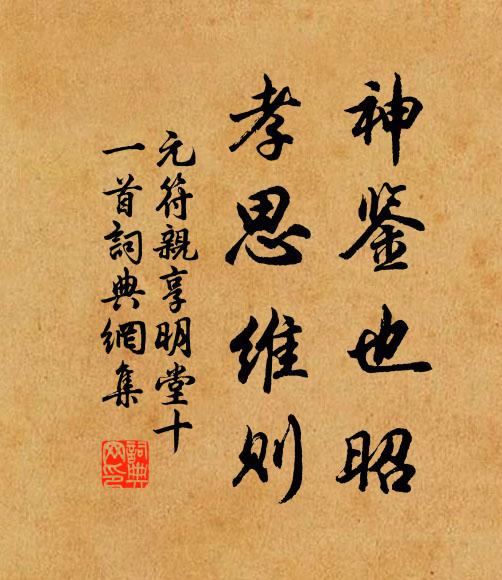 神鉴也昭
孝思维则
元符親享明堂十
一首詞典網集
詞典網印